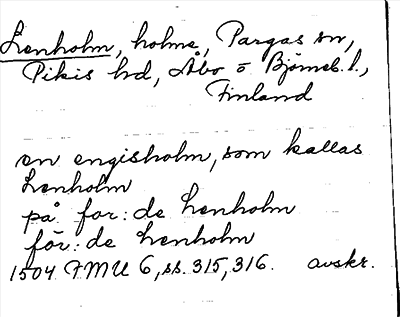 Lenholm, holme, Pargas sn,
Pikis hd, Åbo o. Björneb. l.,
Finland
en engisholm, som kallas
Lenholm
på for: de Lenholm
för: de Lenholm
1504 FMU 6, ss. 315, 316. avskr.